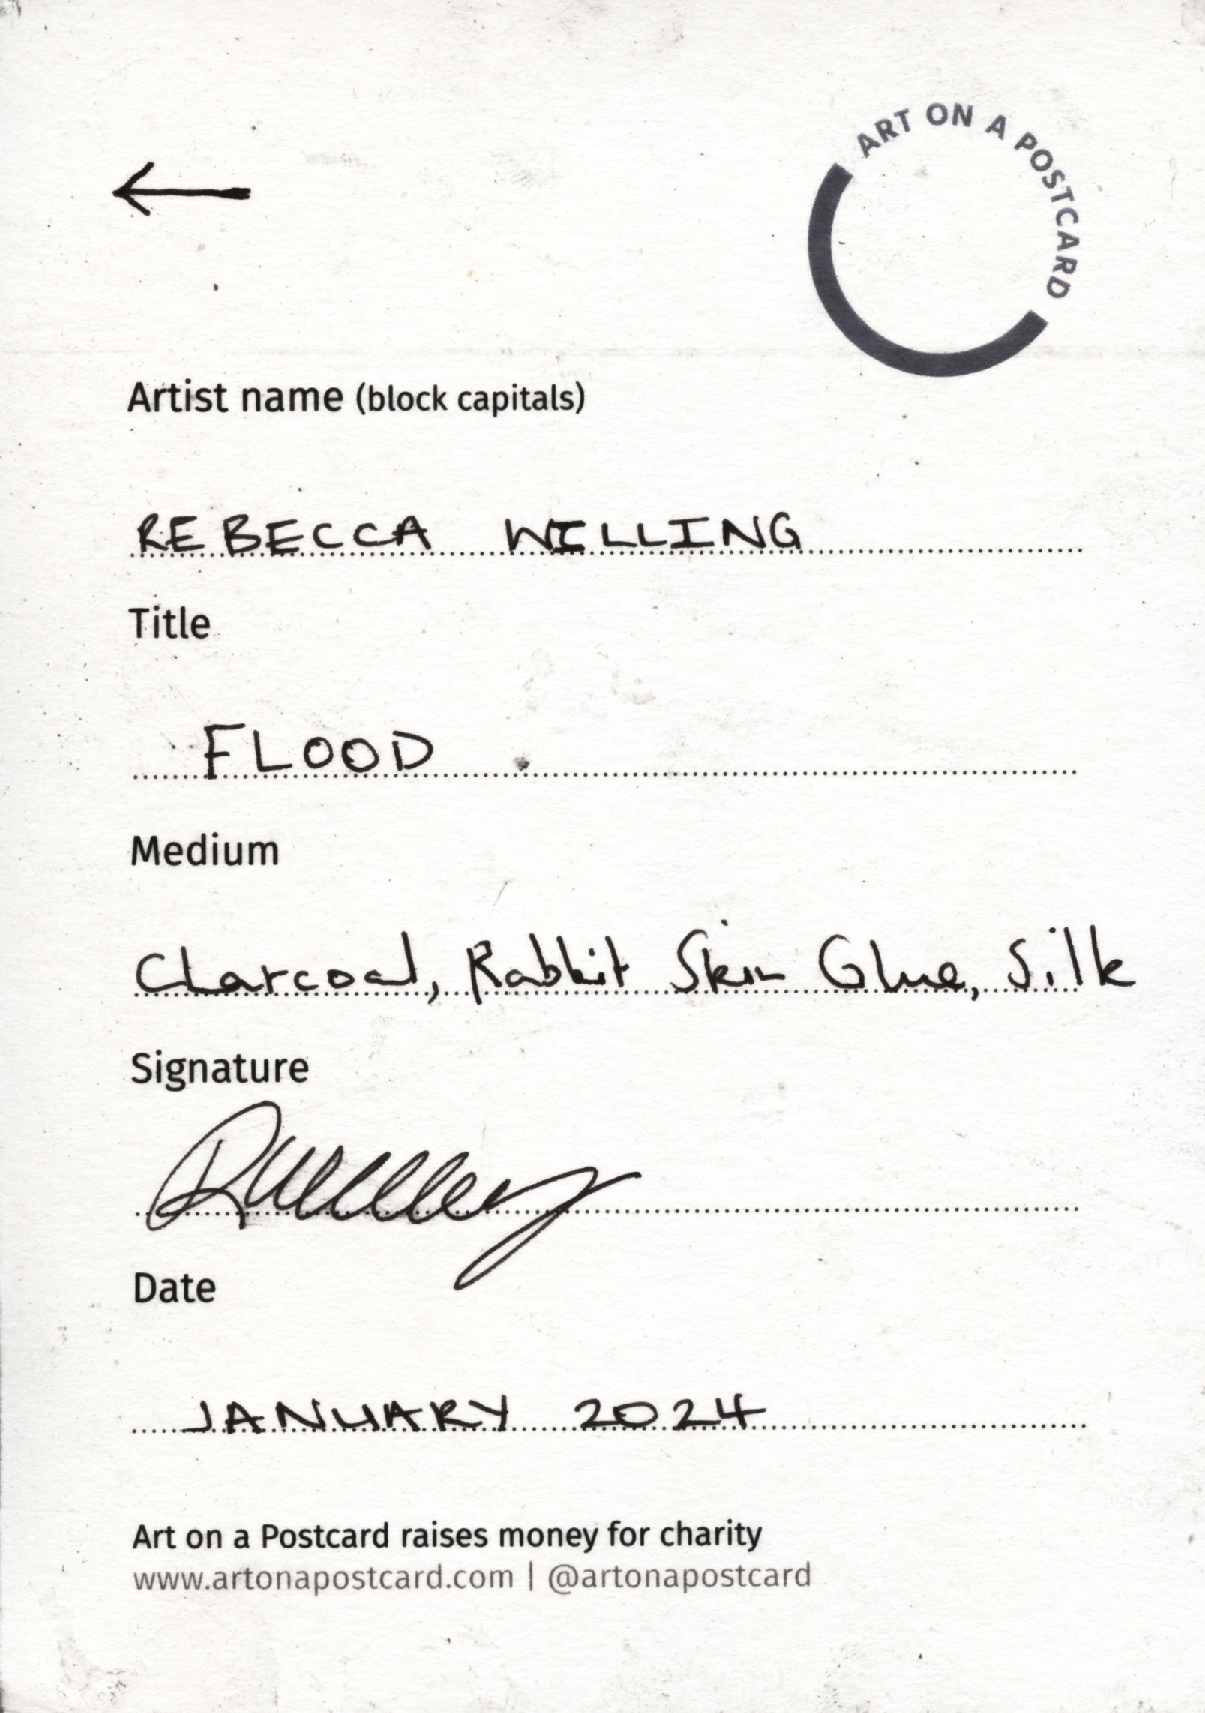 ART ON A POSTCARD
Artist name (block capitals)
REBECCA WILLING
Title
FLOOD
Medium
Charcoal, Rabbit Skin Glue, Silk
Signature
Date
JANUARY 2024
Art on a Postcard raises money for charity
www.artonapostcard.com | @artonapostcard